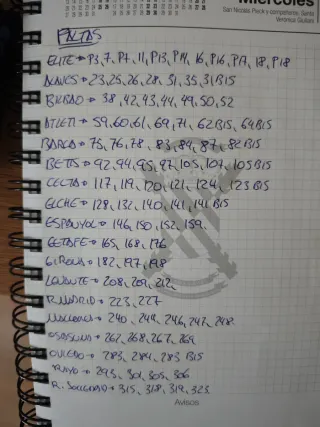 Miércoles
San Nicolás Pieck y compañeros, Santa
Verónica Giuliani
FALTAS
ELITE → P3, 7, P7, 11, P13, P14, 16, P16, P17, 18, P18
ALAVES → 23, 25, 26, 28, 31, 35, 31 BIS
BILBAO → 38, 42, 43, 44, 49, 50, 52
ATLETI → 59, 60, 61, 69, 71, 62 BIS, 64 BIS
BARCA → 75, 76, 78, 83, 84, 87, 82 BIS
BETIS → 92, 94, 95, 97, 105, 107, 105 BIS
CELTA → 117, 119, 120, 121, 124, 123 BIS
ELCHE → 128, 132, 140, 141, 141 BIS
ESPANYOL → 146, 150, 152, 159
GETAFE → 165, 168, 176
GIRONA → 182, 197, 198
LEVANTE → 208, 209, 212
R. MADRID → 223, 227
MALLORCA → 240, 244, 246, 247, 248
OSASUNA → 262, 268, 267, 269
OVIEDO → 283, 284, 283 BIS
RAYO → 293, 301, 305, 306
R. SOCIEDAD → 315, 318, 319, 323
Avisos